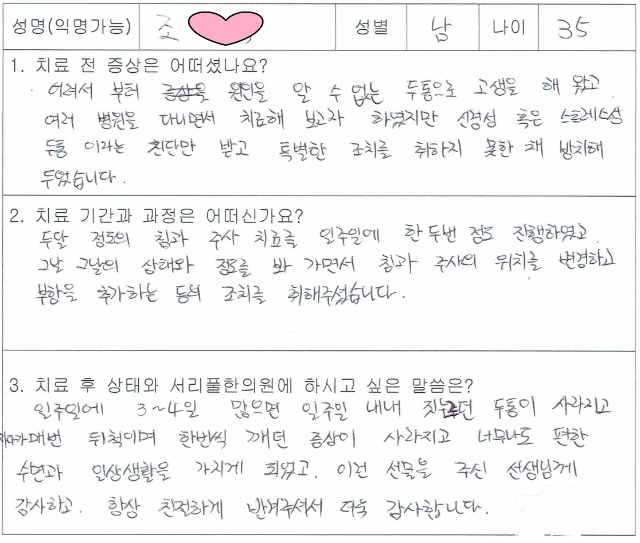 성명(익명가능) 조 성별 남 나이 35
1. 치료 전 증상은 어떠셨나요?
어려서 부터 원인을 알 수 없는 두통으로 고생을 해 왔고
여러 병원을 다니면서 치료해 보고자 하였지만 신경성 혹은 스트레스성
두통 이라는 진단만 받고 특별한 조치를 취하지 못한 채 방치해
두었습니다.
2. 치료 기간과 과정은 어떠신가요?
두달 정도의 침과 주사 치료를 일주일에 한두번 정도 진행하였고
그날 그날의 상태와 정도를 봐 가면서 침과 주사의 위치를 변경하고
부항을 추가하는 등의 조치를 취해주셨습니다.
3. 치료 후 상태와 서리풀한의원에 하시고 싶은 말씀은?
일주일에 3~4일 많으면 일주일 내내 짓누르던 두통이 사라지고
자다가 매번 뒤척이며 한번씩 깨던 증상이 사라지고 너무나도 편한
수면과 일상생활을 가지게 되었고, 이런 선물을 주신 선생님께
감사하고. 항상 친절하게 반겨주셔서 더욱 감사합니다.